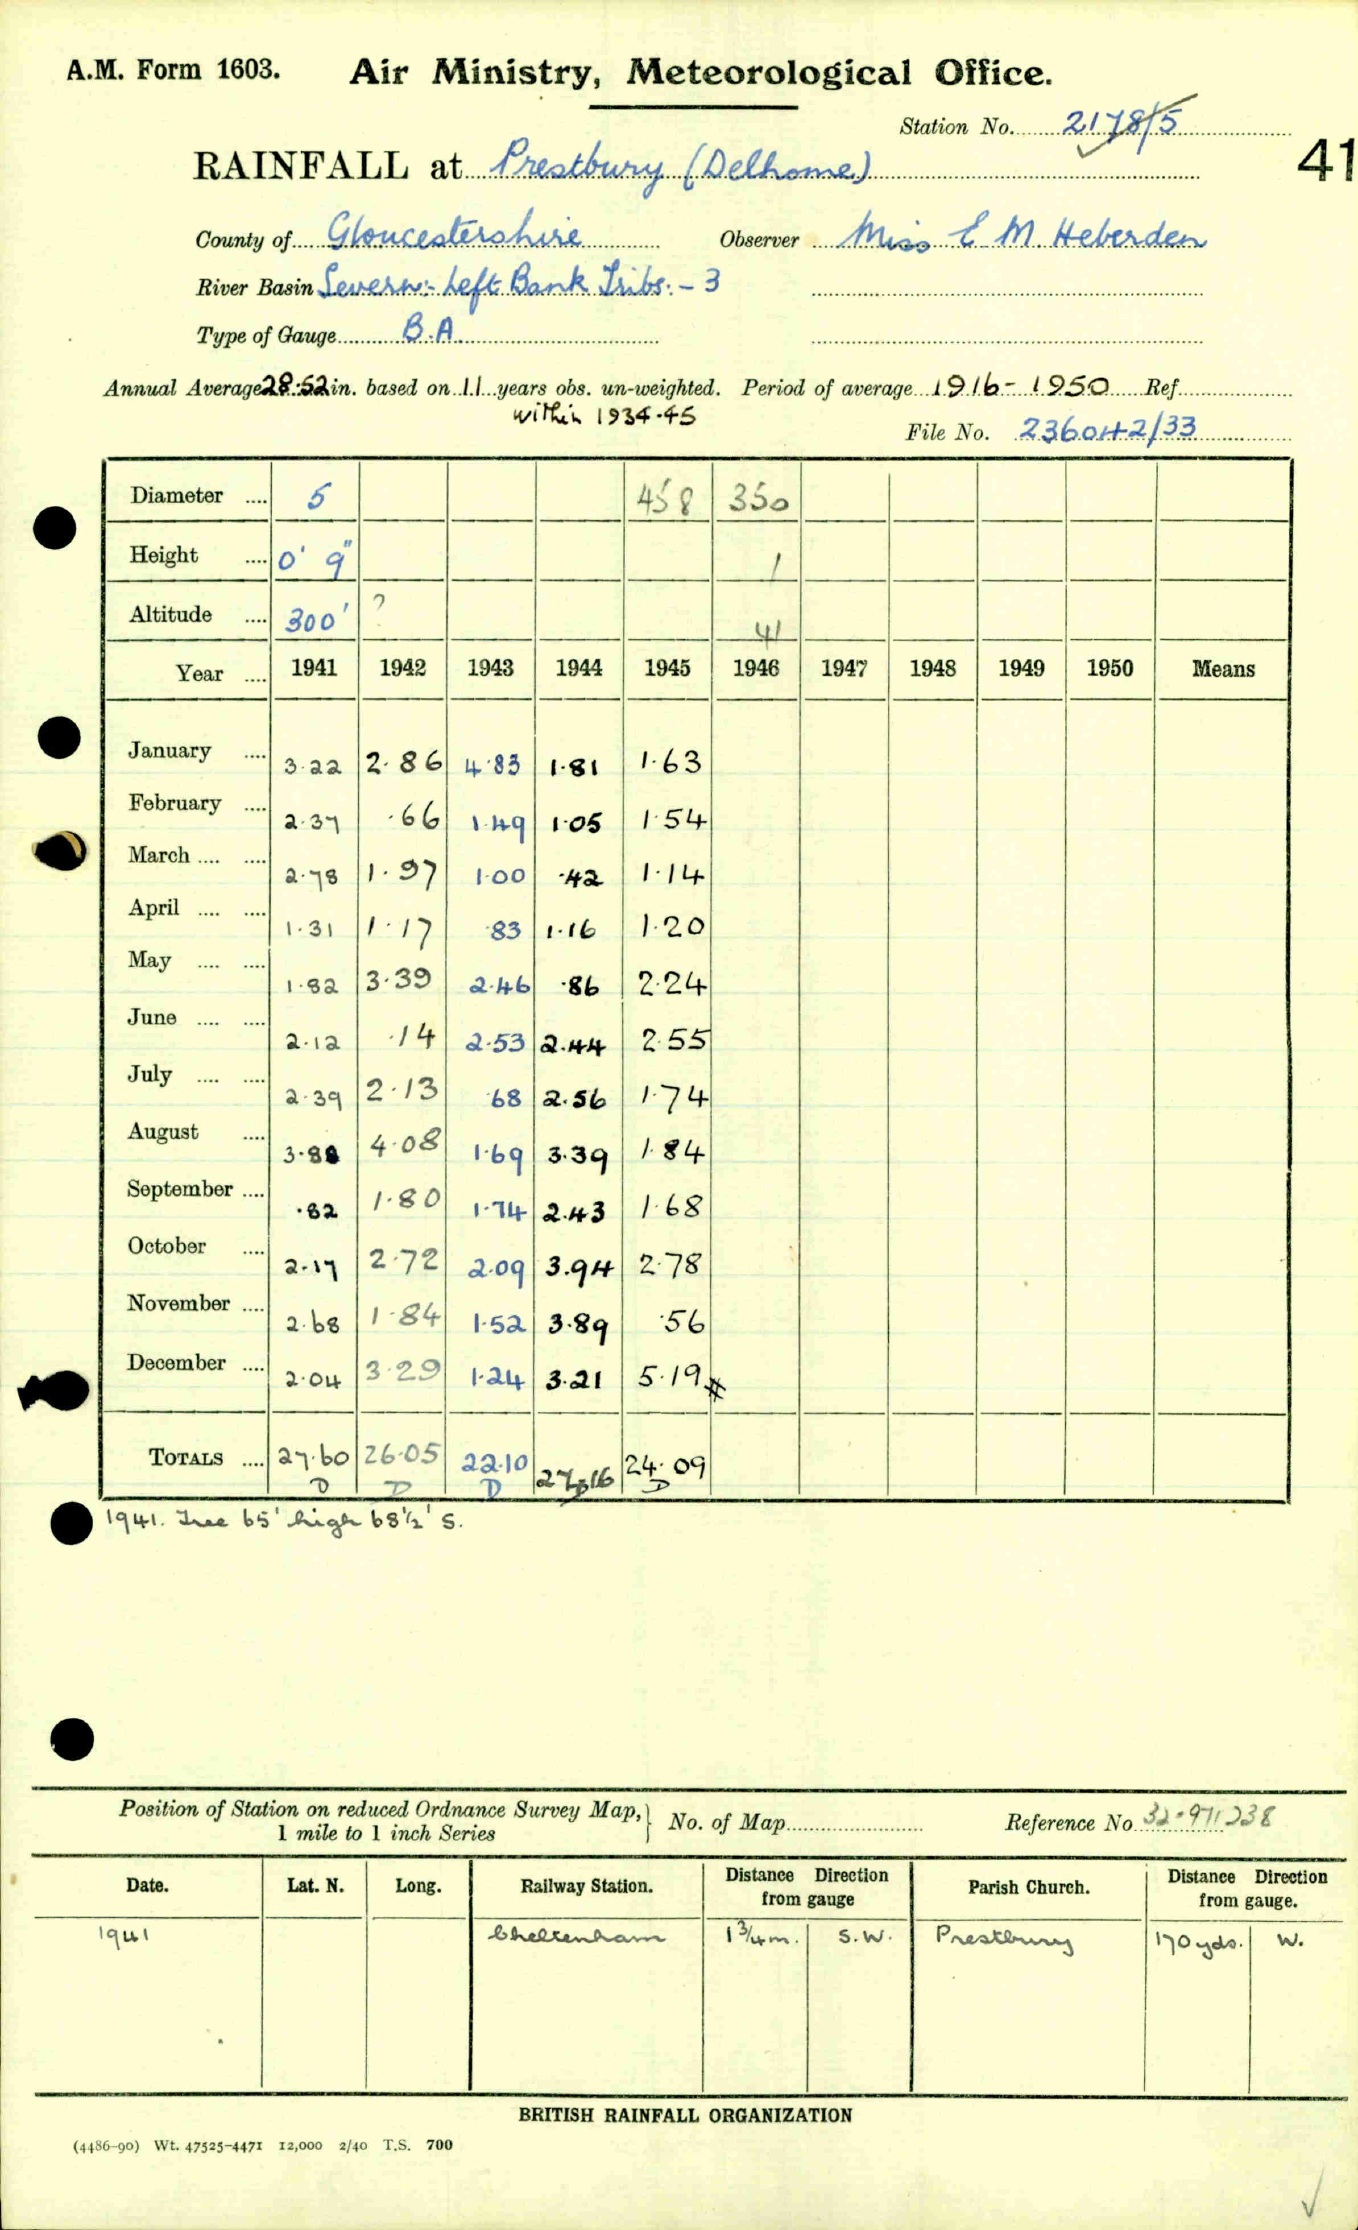 A.M. Form 1603. Air Ministry, Meteorological Office.
Station No. 2178/5
41
RAINFALL at Prestbury (Delhome)
County of Gloucestershire Observer Miss E M. Heberden
River Basin Severn:- Left Bank Tribs. - 3
Type of Gauge B.A.
Annual Average 28.52 in. based on 11 years obs. un-weighted. Period of average 1916-1950 Ref.
within 1934-45
File No. 236042/33
Diameter .... 5 458 350
Height .... 0' 9" 1
Altitude .... 300' ? 41
Year .... 1941 1942 1943 1944 1945 1946 1947 1948 1949 1950 Means
January .... 3.22 2.86 4.83 1.81 1.63
February .... 2.37 .66 1.49 1.05 1.54
March .... .... 2.78 1.97 1.00 .42 1.14
April .... .... 1.31 1.17 .83 1.16 1.20
May .... .... 1.82 3.39 2.46 .86 2.24
June .... .... 2.12 .14 2.53 2.44 2.55
July .... .... 2.39 2.13 .68 2.56 1.74
August .... 3.88 4.08 1.69 3.39 1.84
September .... .82 1.80 1.74 2.43 1.68
October .... 2.17 2.72 2.09 3.94 2.78
November .... 2.68 1.84 1.52 3.89 .56
December .... 2.04 3.29 1.24 3.21 5.19 #
TOTALS .... 27.60 26.05 22.10 27.16 24.09
D D D D D
1941. Tree 65' high 68½' S.
Position of Station on reduced Ordnance Survey Map, } No. of Map Reference No. 32.971238
1 mile to 1 inch Series
Date. Lat. N. Long. Railway Station. Distance Direction from gauge Parish Church. Distance Direction from gauge.
1941 Cheltenham 1¾m. S.W. Prestbury 170yds. W.
BRITISH RAINFALL ORGANIZATION
(4486-90) Wt. 47525-4471 12,000 2/40 T.S. 700